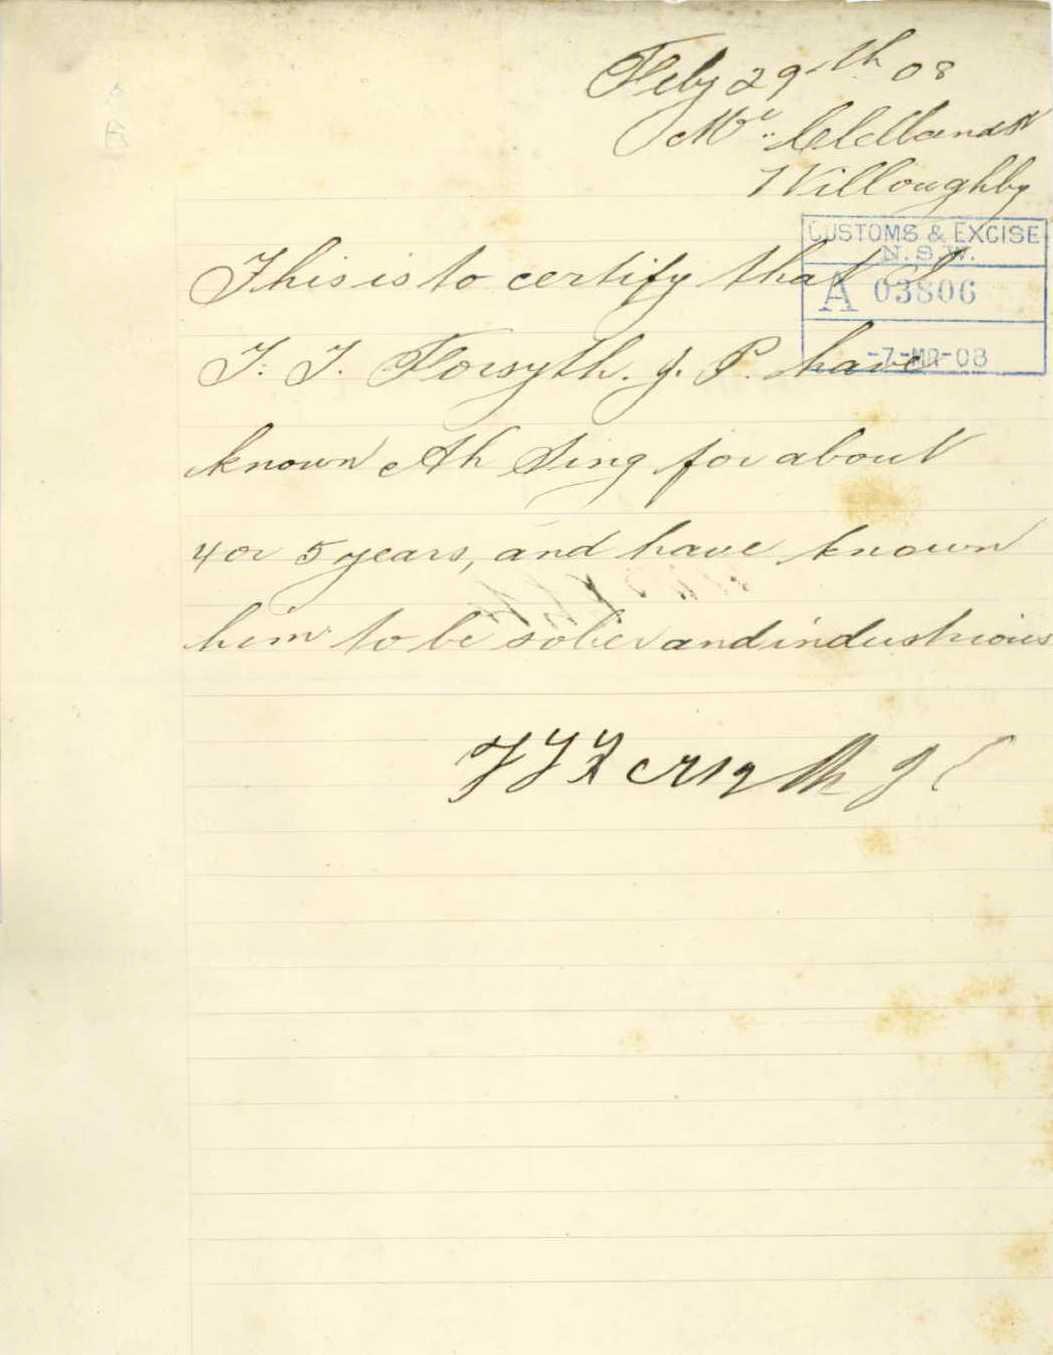 Feby 29th 08
Willoughby
CUSTOMS & EXCISE
N.S.W.
A 03806
-7-MR-08
This is to certify that I
T. T. Forsyth. J. P. have
known Ah Sing for about
4 or 5 years, and have known
him to be sober and industrious
T T Forsyth J P